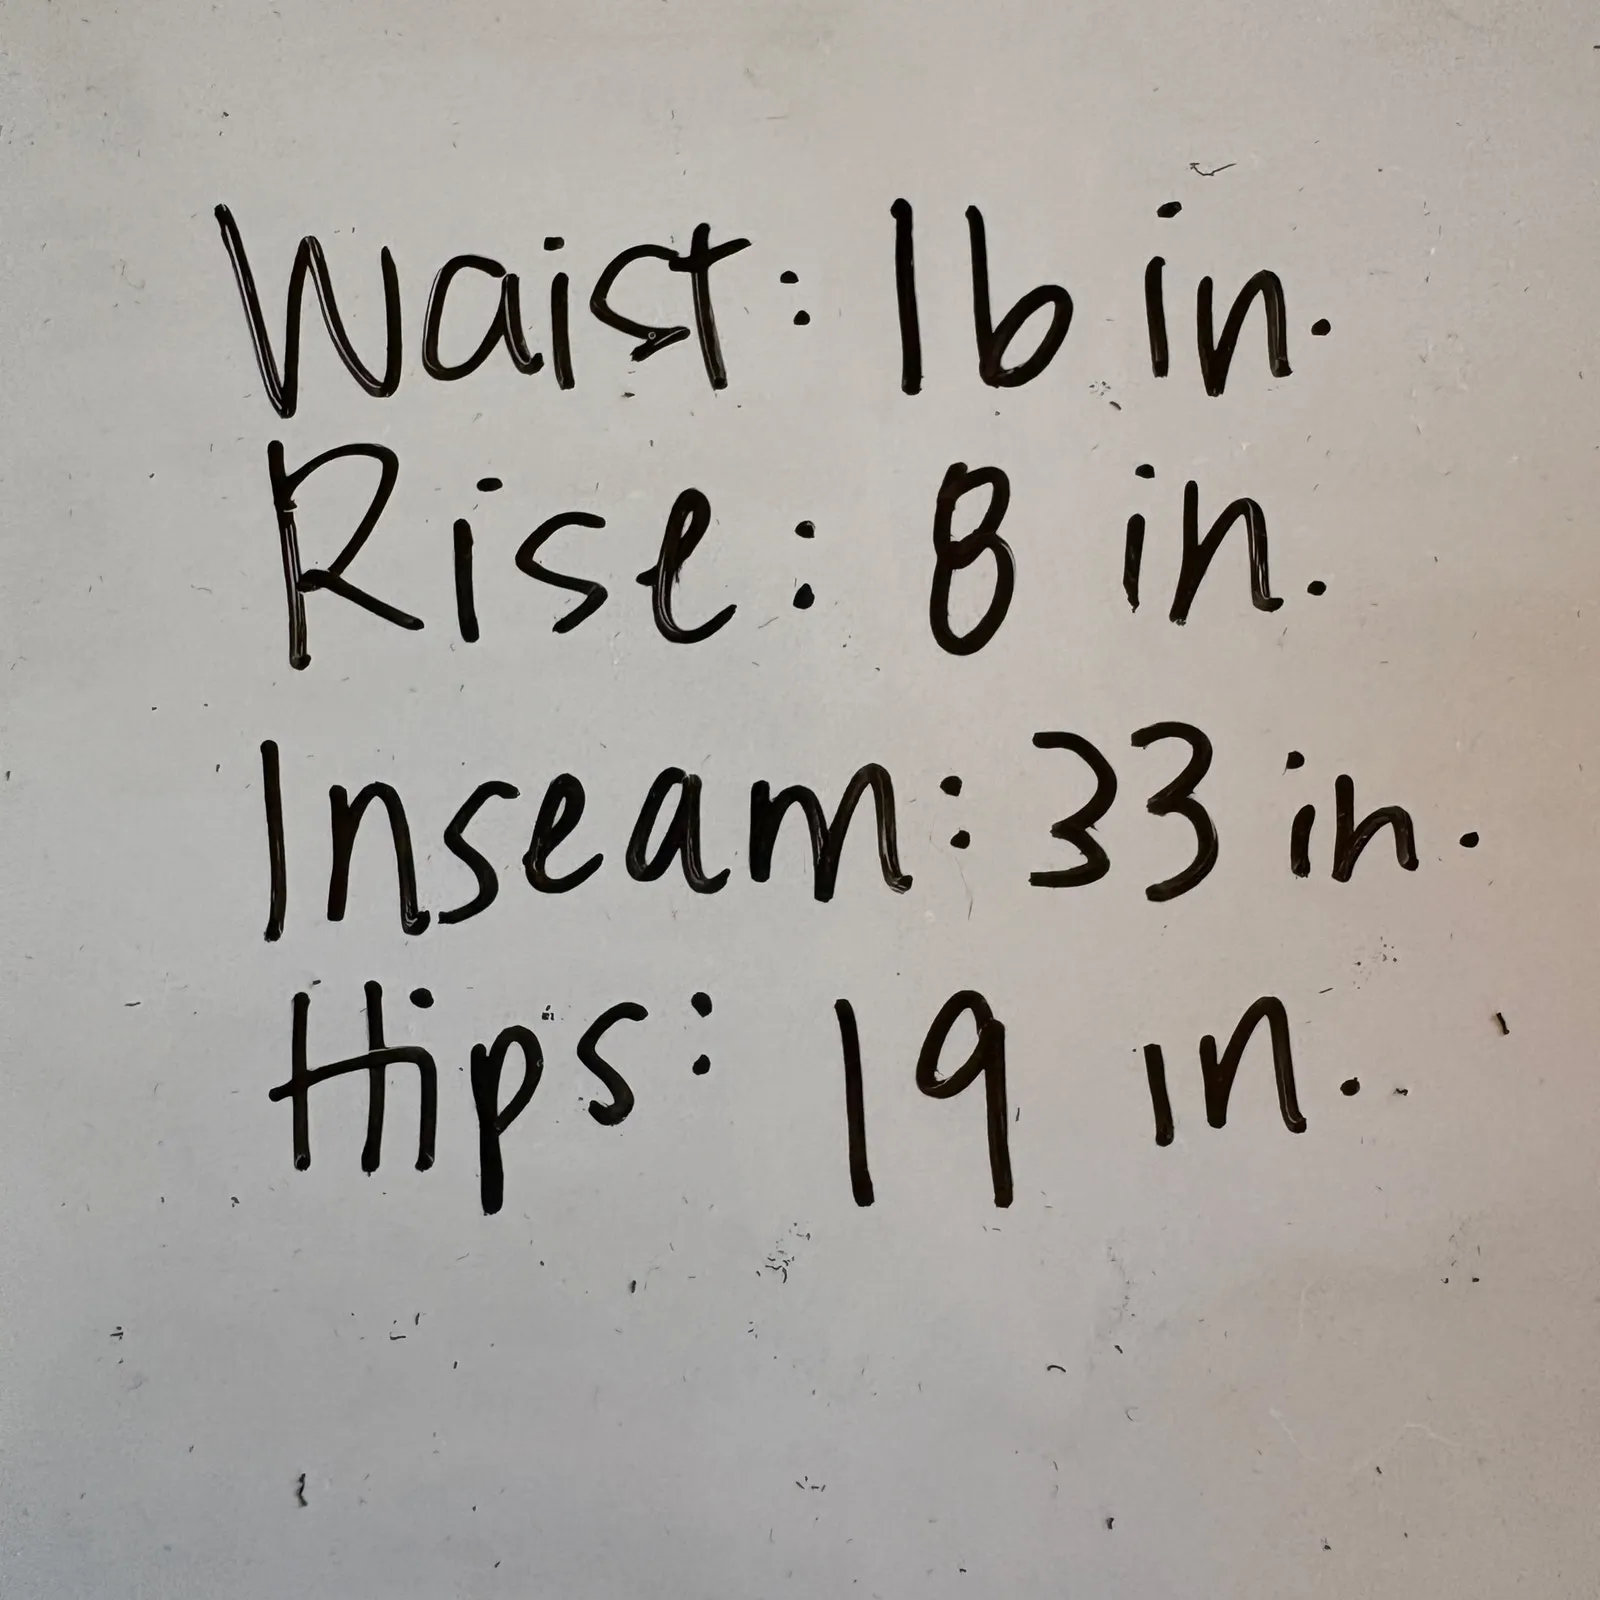 Waist: 16 in.
Rise: 8 in.
Inseam: 33 in.
Hips: 19 in.